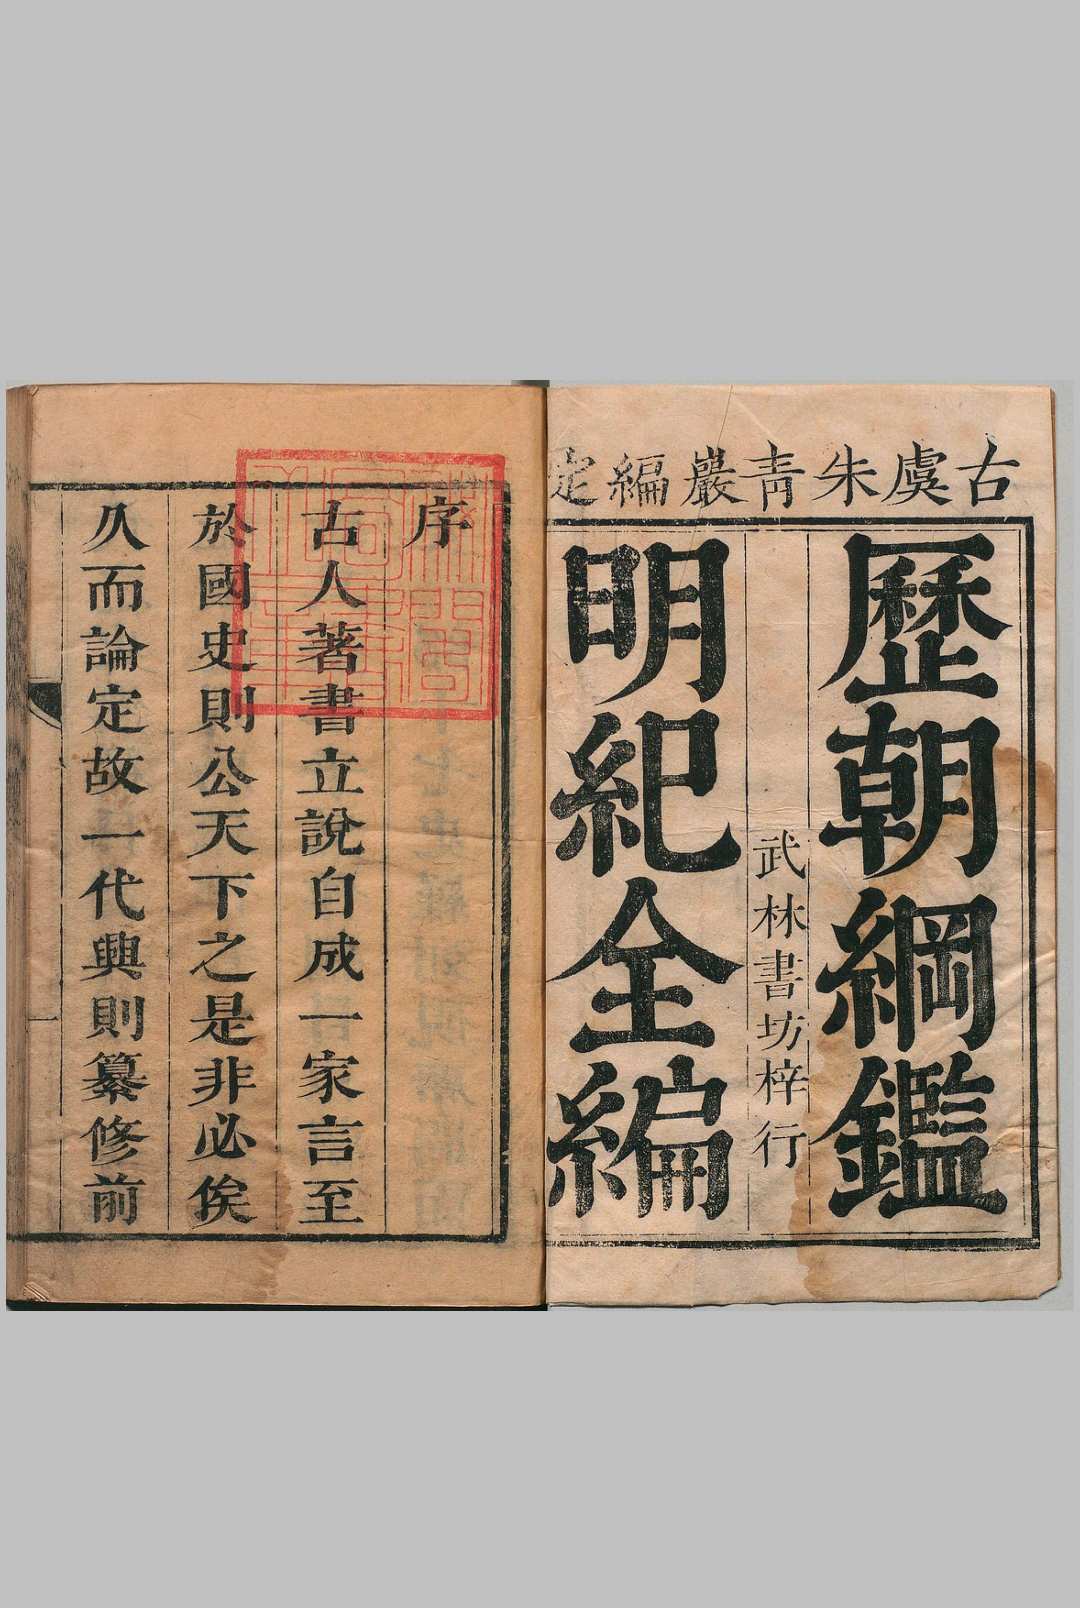 古虞朱青巖編定
歷朝綱鑑
武林書坊梓行
明紀全編
序
古人著書立說自成一家言至
於國史則公天下之是非必俟
久而論定故一代興則纂修前
一